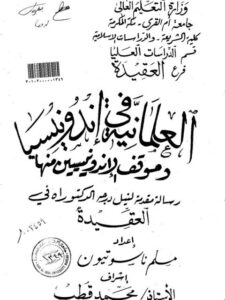 وزارة التعليم العالي
جامعة أم القرى - مكة المكرمة
كلية الشريعة - والدراسات الإسلامية
قسم الدراسات العليا
فرع العقيدة
العلمانية في إندونيسيا
وموقف الإندونيسيين منها
رسالة مقدمة لنيل درجة الدكتوراه في
العقيدة
إعداد
مسلم ناسوتيون
إشراف
الأستاذ/ محمد قطب